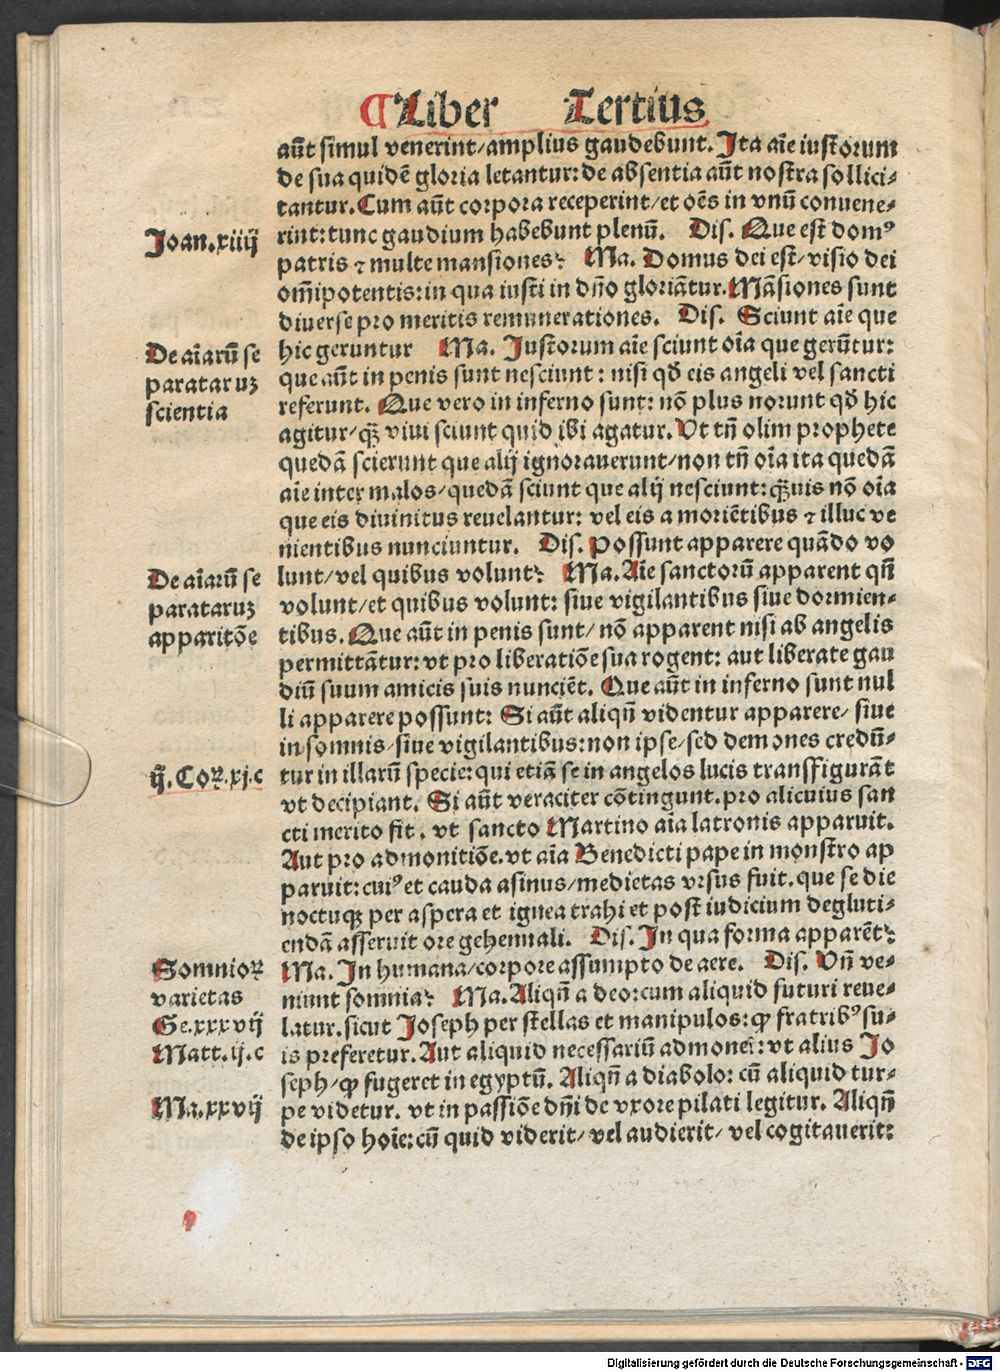 ¶Liber Tertius
aut̄ simul venerint/amplius gaudebunt. Ita aīe iustorum
de sua quidē gloria letantur: de absentia aūt nostra sollici⸗
tantur. Cum aūt corpora receperint/et oēs in vnū conuene⸗
Joan.xiiij
rint: tunc gaudium habebunt plenū. Dis. Que est domꝰ
patris ⁊ multe mansiones? Ma. Domus dei est/visio dei
om̄ipotentis: in qua iusti in dn̄o gloriātur. Māsiones sunt
diuerse pro meritis remunerationes. Dis. Sciunt aīe que
De aīarū se
hic geruntur Ma. Justorum aīe sciunt oīa que gerūtur:
parataruꝫ
que aūt in penis sunt nesciunt: nisi qd̄ eis angeli vel sancti
scientia
referunt. Que vero in inferno sunt: nō plus norunt qd̄ hic
agitur/qꝫ̄ viui sciunt quid ibi agatur. Vt tn̄ olim prophete
quedā scierunt que alij ignorauerunt/non tn̄ oīa ita quedā
aīe inter malos/quedā sciunt que alij nesciunt: qꝫ̄uis nō oīa
que eis diuinitus reuelantur: vel eis a moriētibus ⁊ illuc ve
nientibus nunciuntur. Dis. Possunt apparere quādo vo
De aīarū se
lunt/vel quibus volunt? Ma. Aīe sanctorū apparent qn̄
parataruꝫ
volunt/et quibus volunt: siue vigilantibus siue dormien⸗
apparitōe
tibus. Que aūt in penis sunt/nō apparent nisi ab angelis
permittātur: vt pro liberatiōe sua rogent: aut liberate gau
diū suum amicis suis nunciēt. Que aūt in inferno sunt nul
li apparere possunt: Si aūt aliqn̄ videntur apparere/ siue
in somnis/siue vigilantibus: non ipse/sed demones credū⸗
ij. Coꝝ.xj.c
tur in illarū specie: qui etiā se in angelos lucis transfigurāt
vt decipiant. Si aūt veraciter cōtingunt. pro alicuius san
cti merito fit. vt sancto Martino aīa latronis apparuit.
Aut pro admonitiōe. vt aīa Benedicti pape in monstro ap
paruit: cuiꝰ et cauda asinus/medietas vrsus fuit. que se die
noctuqꝫ per aspera et ignea trahi et post iudicium degluti⸗
endā asseruit ore gehennali. Dis. In qua forma apparēt?
Somnioꝝ
Ma. In humana/corpore assumpto de aere. Dis. Vn̄ ve⸗
varietas
niunt somnia? Ma. Aliqn̄ a deo: cum aliquid futuri reue⸗
Ge.xxxvij
latur. sicut Joseph per stellas et manipulos: qꝙ fratribꝰ su⸗
Matt.ij.c
is preferetur. Aut aliquid necessariū admonet: vt alius Jo
seph/qꝙ fugeret in egyptū. Aliqn̄ a diabolo: cū aliquid tur⸗
Ma.xxvij
pe videtur. vt in passiōe dn̄i de vxore pilati legitur. Aliqn̄
de ipso hoīe: cū quid viderit/ vel audierit/ vel cogitauerit:
Digitalisierung gefördert durch die Deutsche Forschungsgemeinschaft - DFG